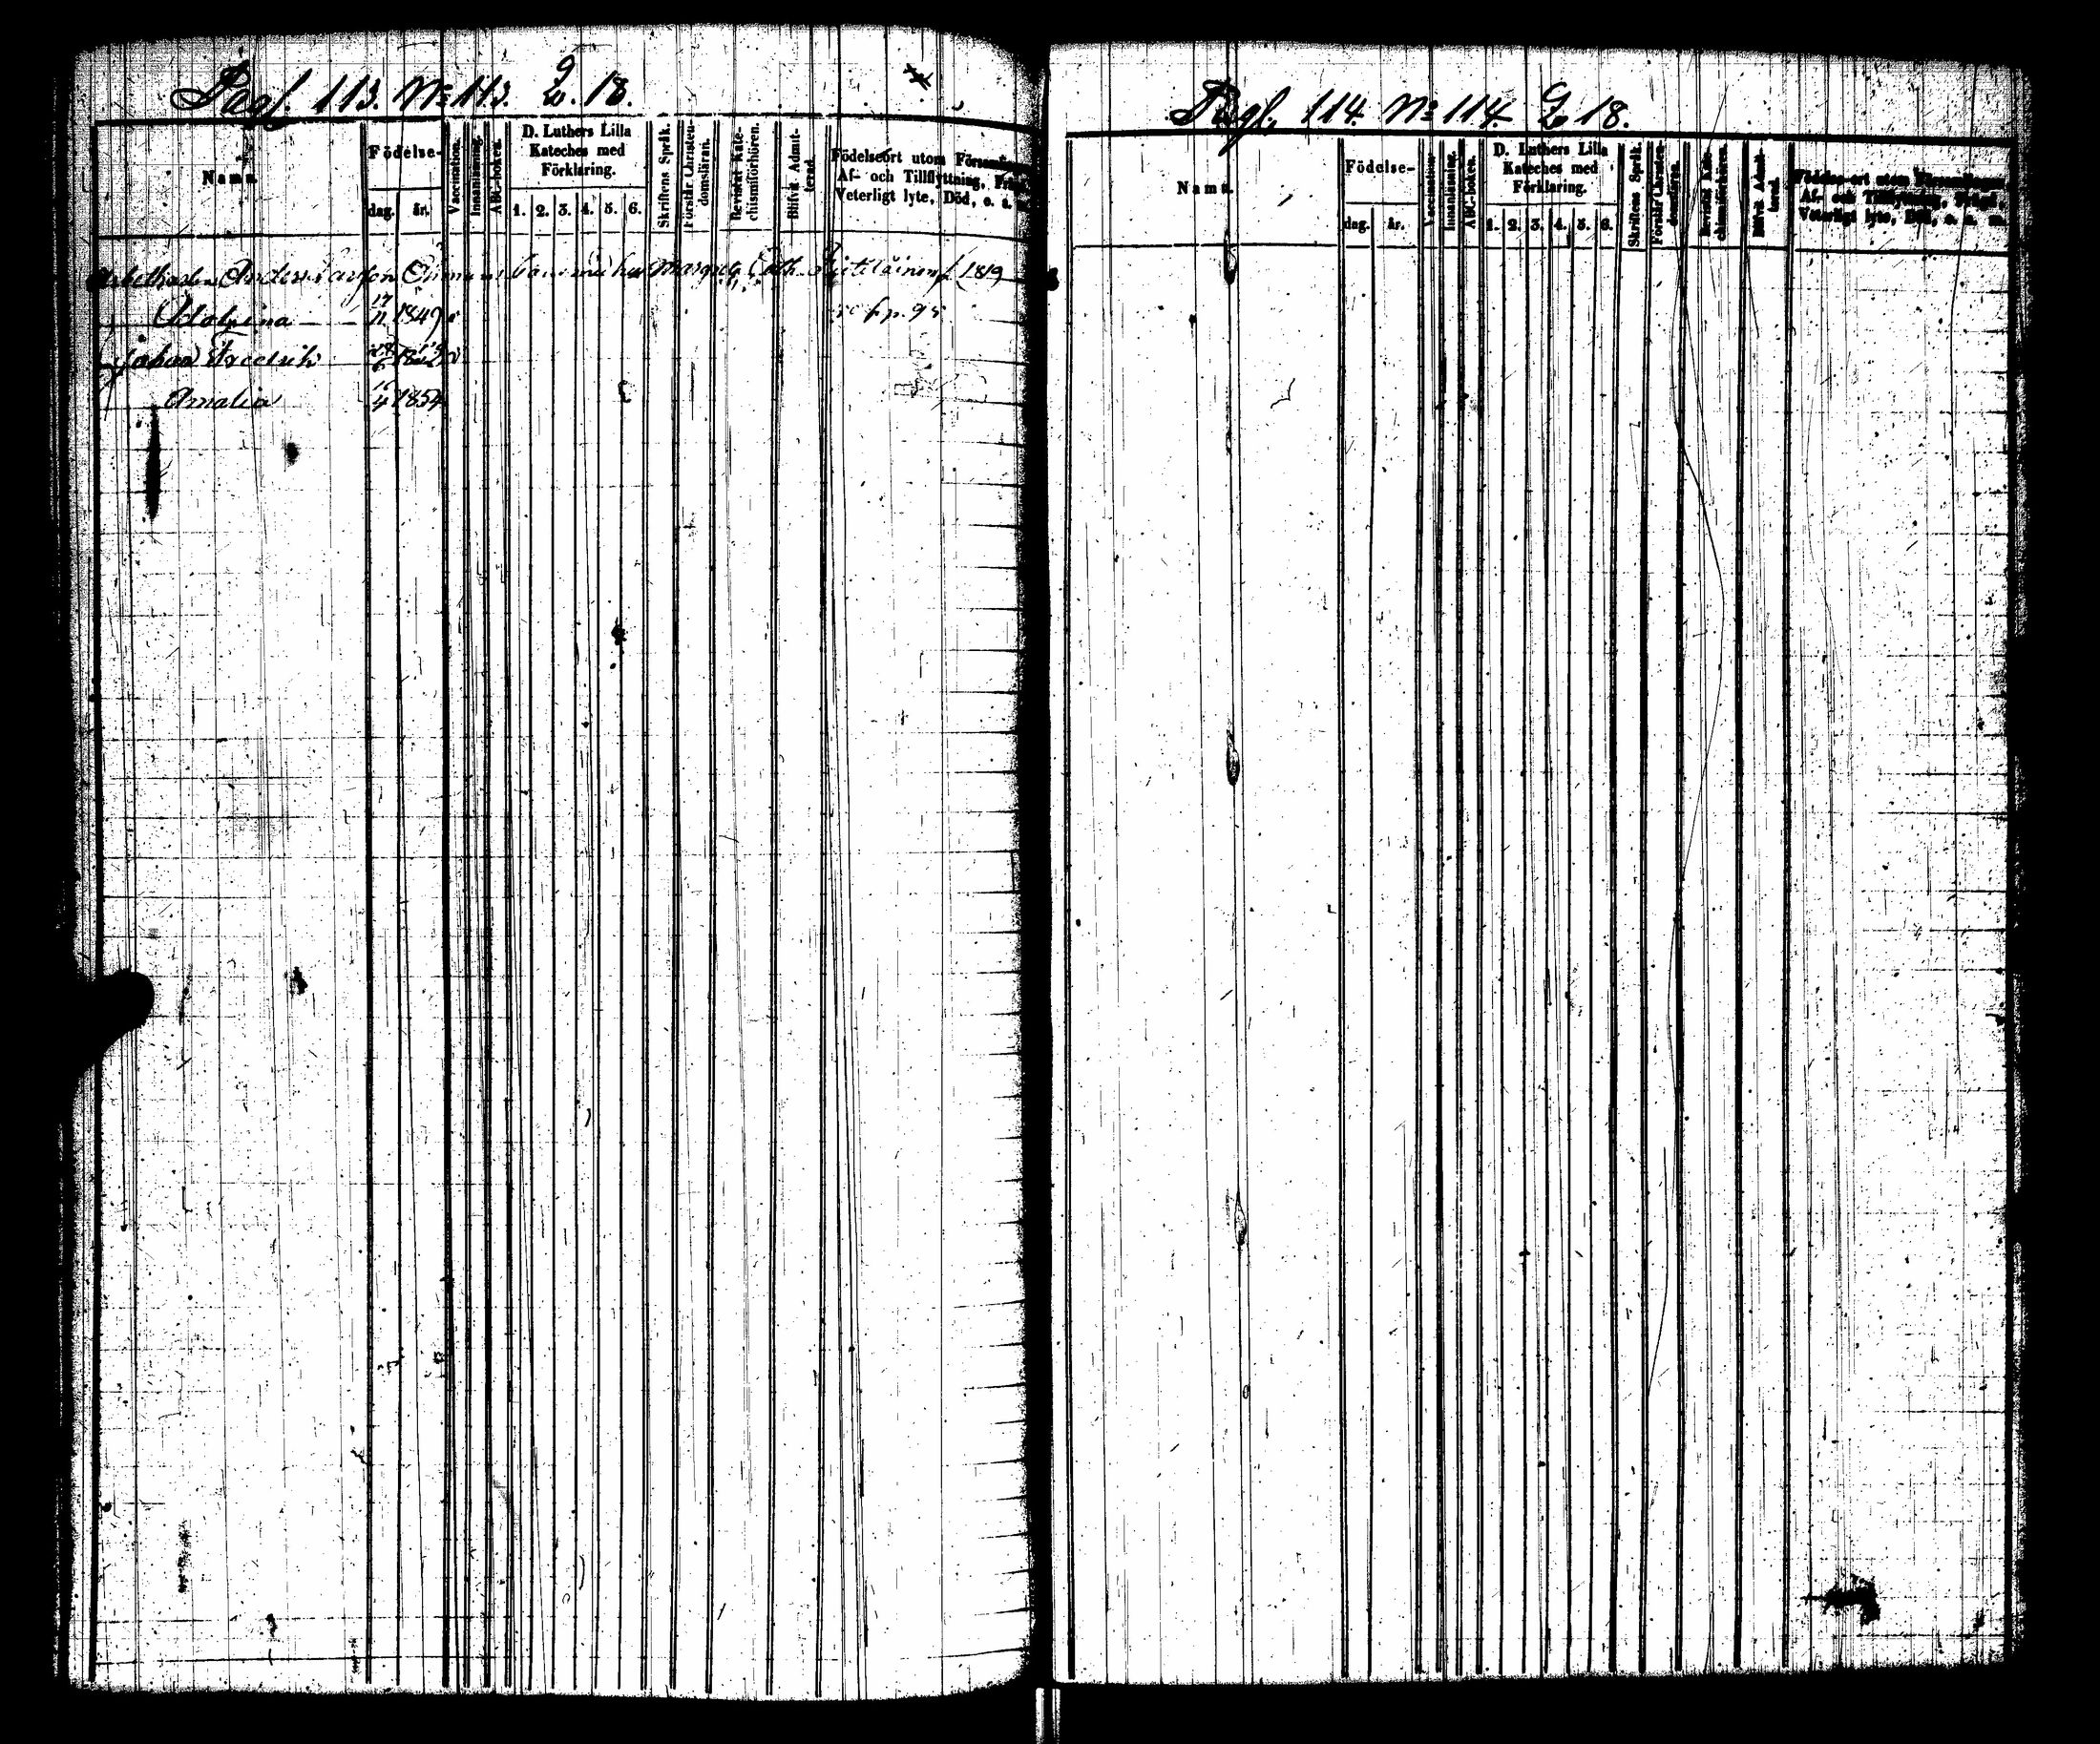 Pagl. 113. No 113. L. 18.
Namn.
Födelse-
dag. år.
Vaccination.
Innanläsning.
ABC-boken.
D. Luthers Lilla
Kateches med
Förklaring.
1. 2. 3. 4. 5. 6.
Skriftens Språk.
Förstår Christen-
domsläran.
Bevistat Kate-
chismiförhören.
Blifvit Admit-
terad.
Födelseort utom Församlingen,
Af- och Tillflyttning, Frägd,
Veterligt lyte, Död, o. s. v.
Anders Larsson hus Margreta Cath. f. 1819
Adolfina 17/11 1849
Johan Fredrik 1852
Amalia 16/4 1854
Pagl. 114. No 114. L 18.
Namn.
Födelse-
dag. år.
Vaccination.
Innanläsning.
ABC-boken.
D. Luthers Lilla
Kateches med
Förklaring.
1. 2. 3. 4. 5. 6.
Skriftens Språk.
Förstår Christen-
domsläran.
Bevistat Kate-
chismiförhören.
Blifvit Admit-
terad.
Födelse-ort utom Församlingen,
Af- och Tillflyttning, Frägd,
Veterligt lyto, Död, o. s. v.